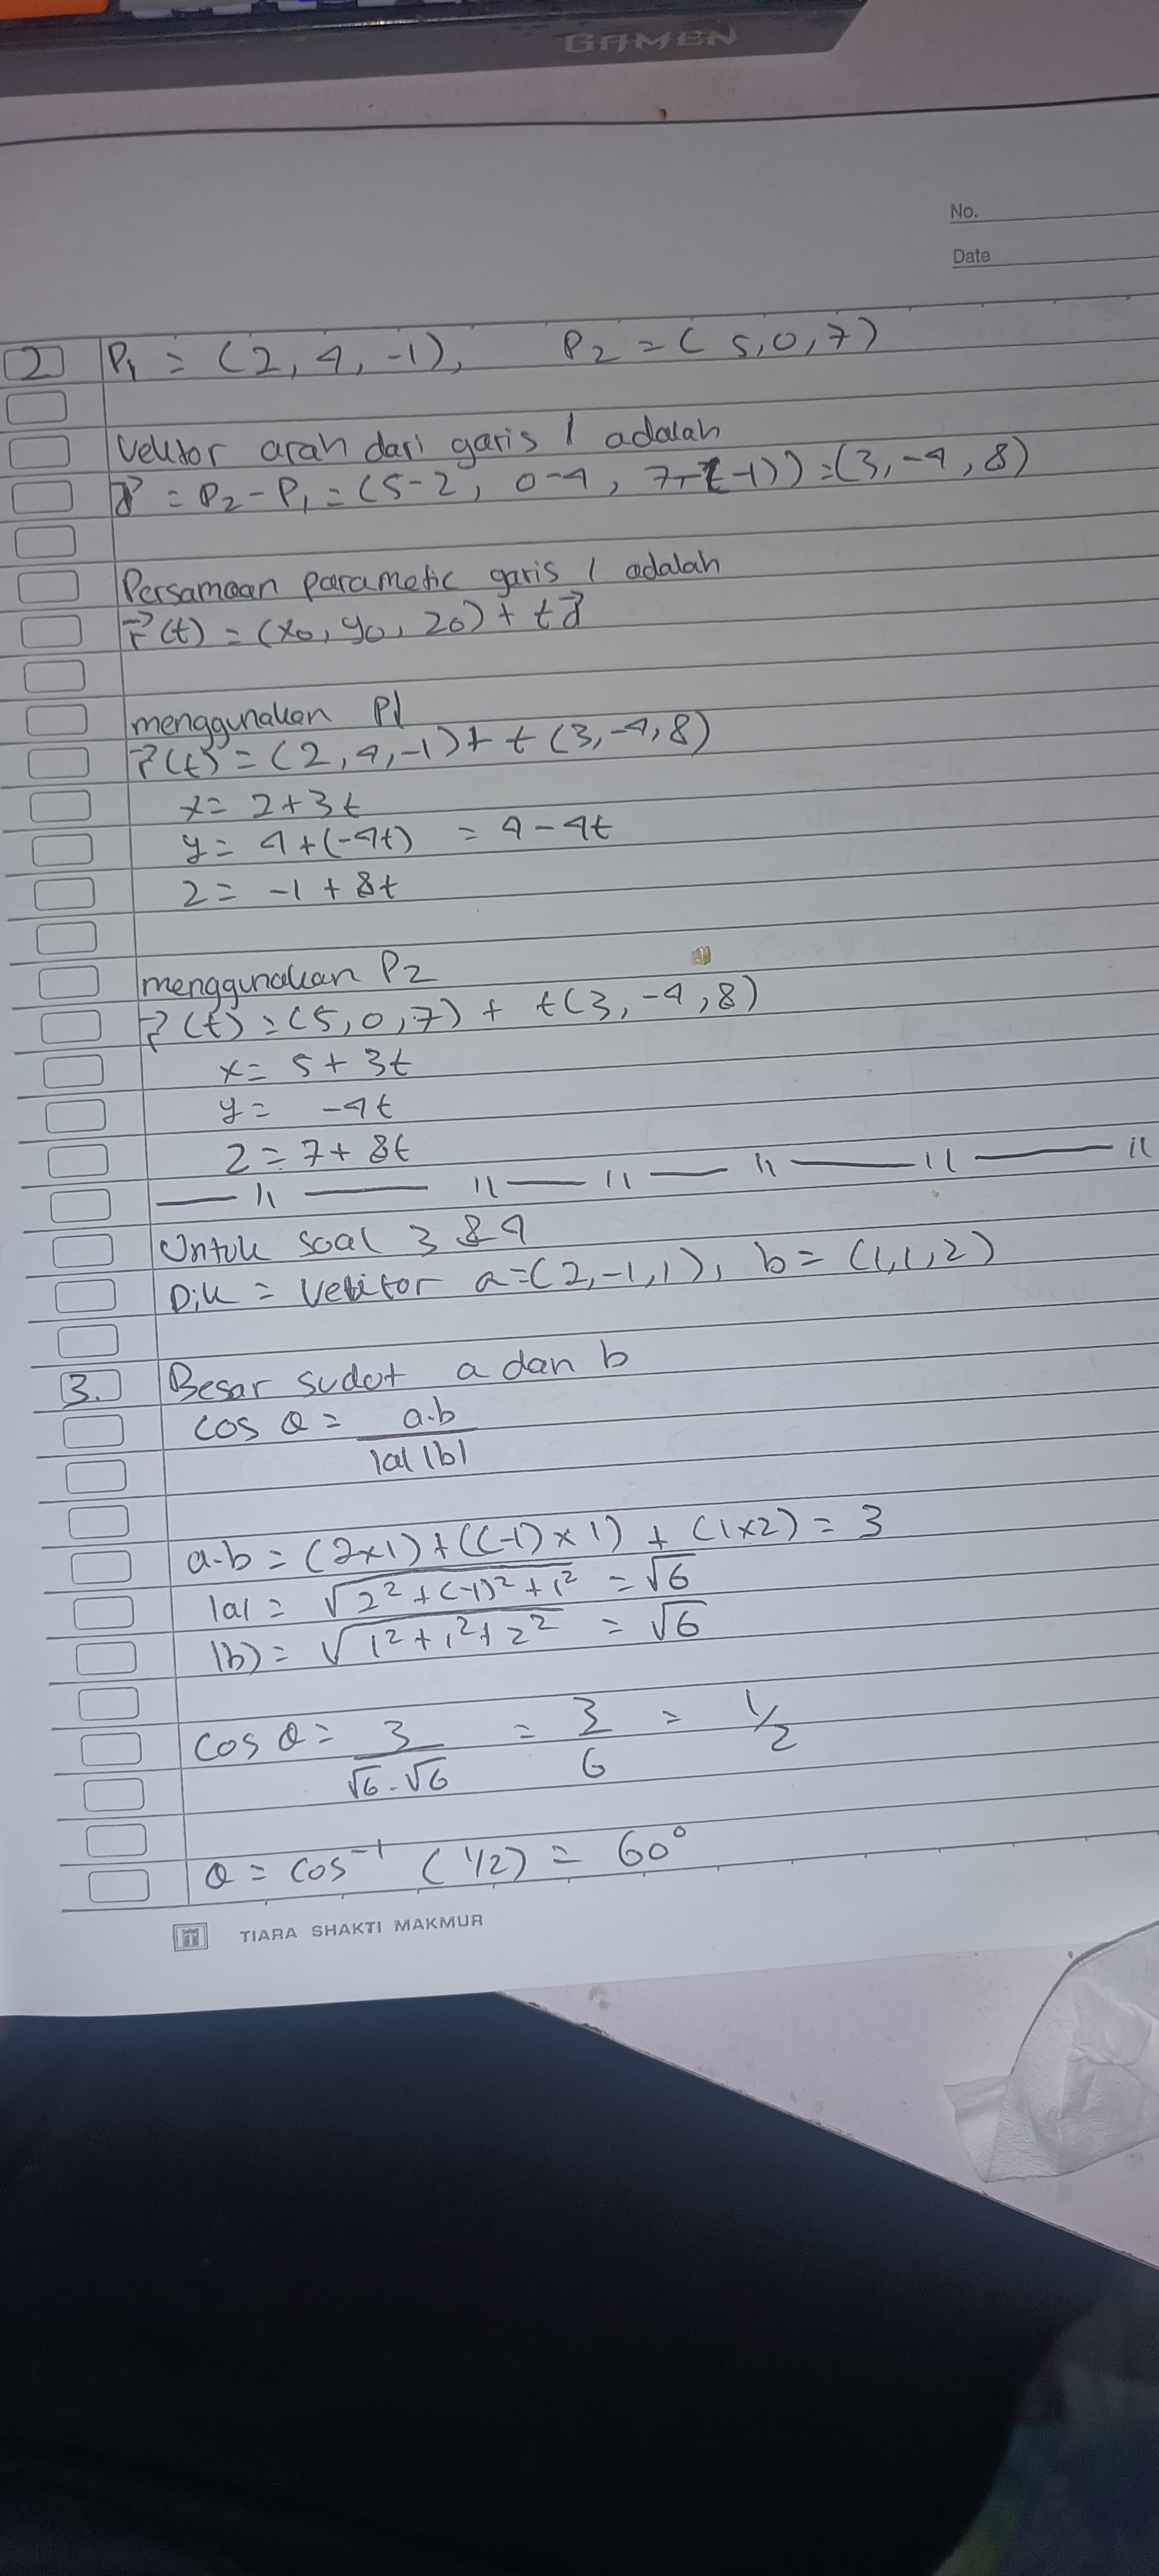 GAMEN
No.
Date
2 P₁ = (2, 4, -1), P₂ = (5, 0, 7)
Vektor arah dari garis l adalah
d⃗ = P₂ - P₁ = (5-2, 0-4, 7-(-1)) = (3, -4, 8)
Persamaan parametic garis l adalah
r⃗(t) = (x₀, y₀, z₀) + t d⃗
menggunakan P1
r⃗(t) = (2, 4, -1) + t (3, -4, 8)
x = 2 + 3t
y = 4 + (-4t) = 4 - 4t
z = -1 + 8t
menggunakan P2
r⃗(t) = (5, 0, 7) + t(3, -4, 8)
x = 5 + 3t
y = -4t
z = 7 + 8t
— // — // — // — // — // — //
Untuk soal 3 & 4
Dik = vektor a = (2, -1, 1), b = (1, 1, 2)
3. Besar sudut a dan b
cos θ = a.b
|a| |b|
a.b = (2x1) + ((-1) x 1) + (1x2) = 3
|a| = √2² + (-1)² + 1² = √6
|b| = √1² + 1² + 2² = √6
cos θ = 3 = 3 = 1/2
√6 . √6 6
θ = cos⁻¹ (1/2) = 60°
TIARA SHAKTI MAKMUR